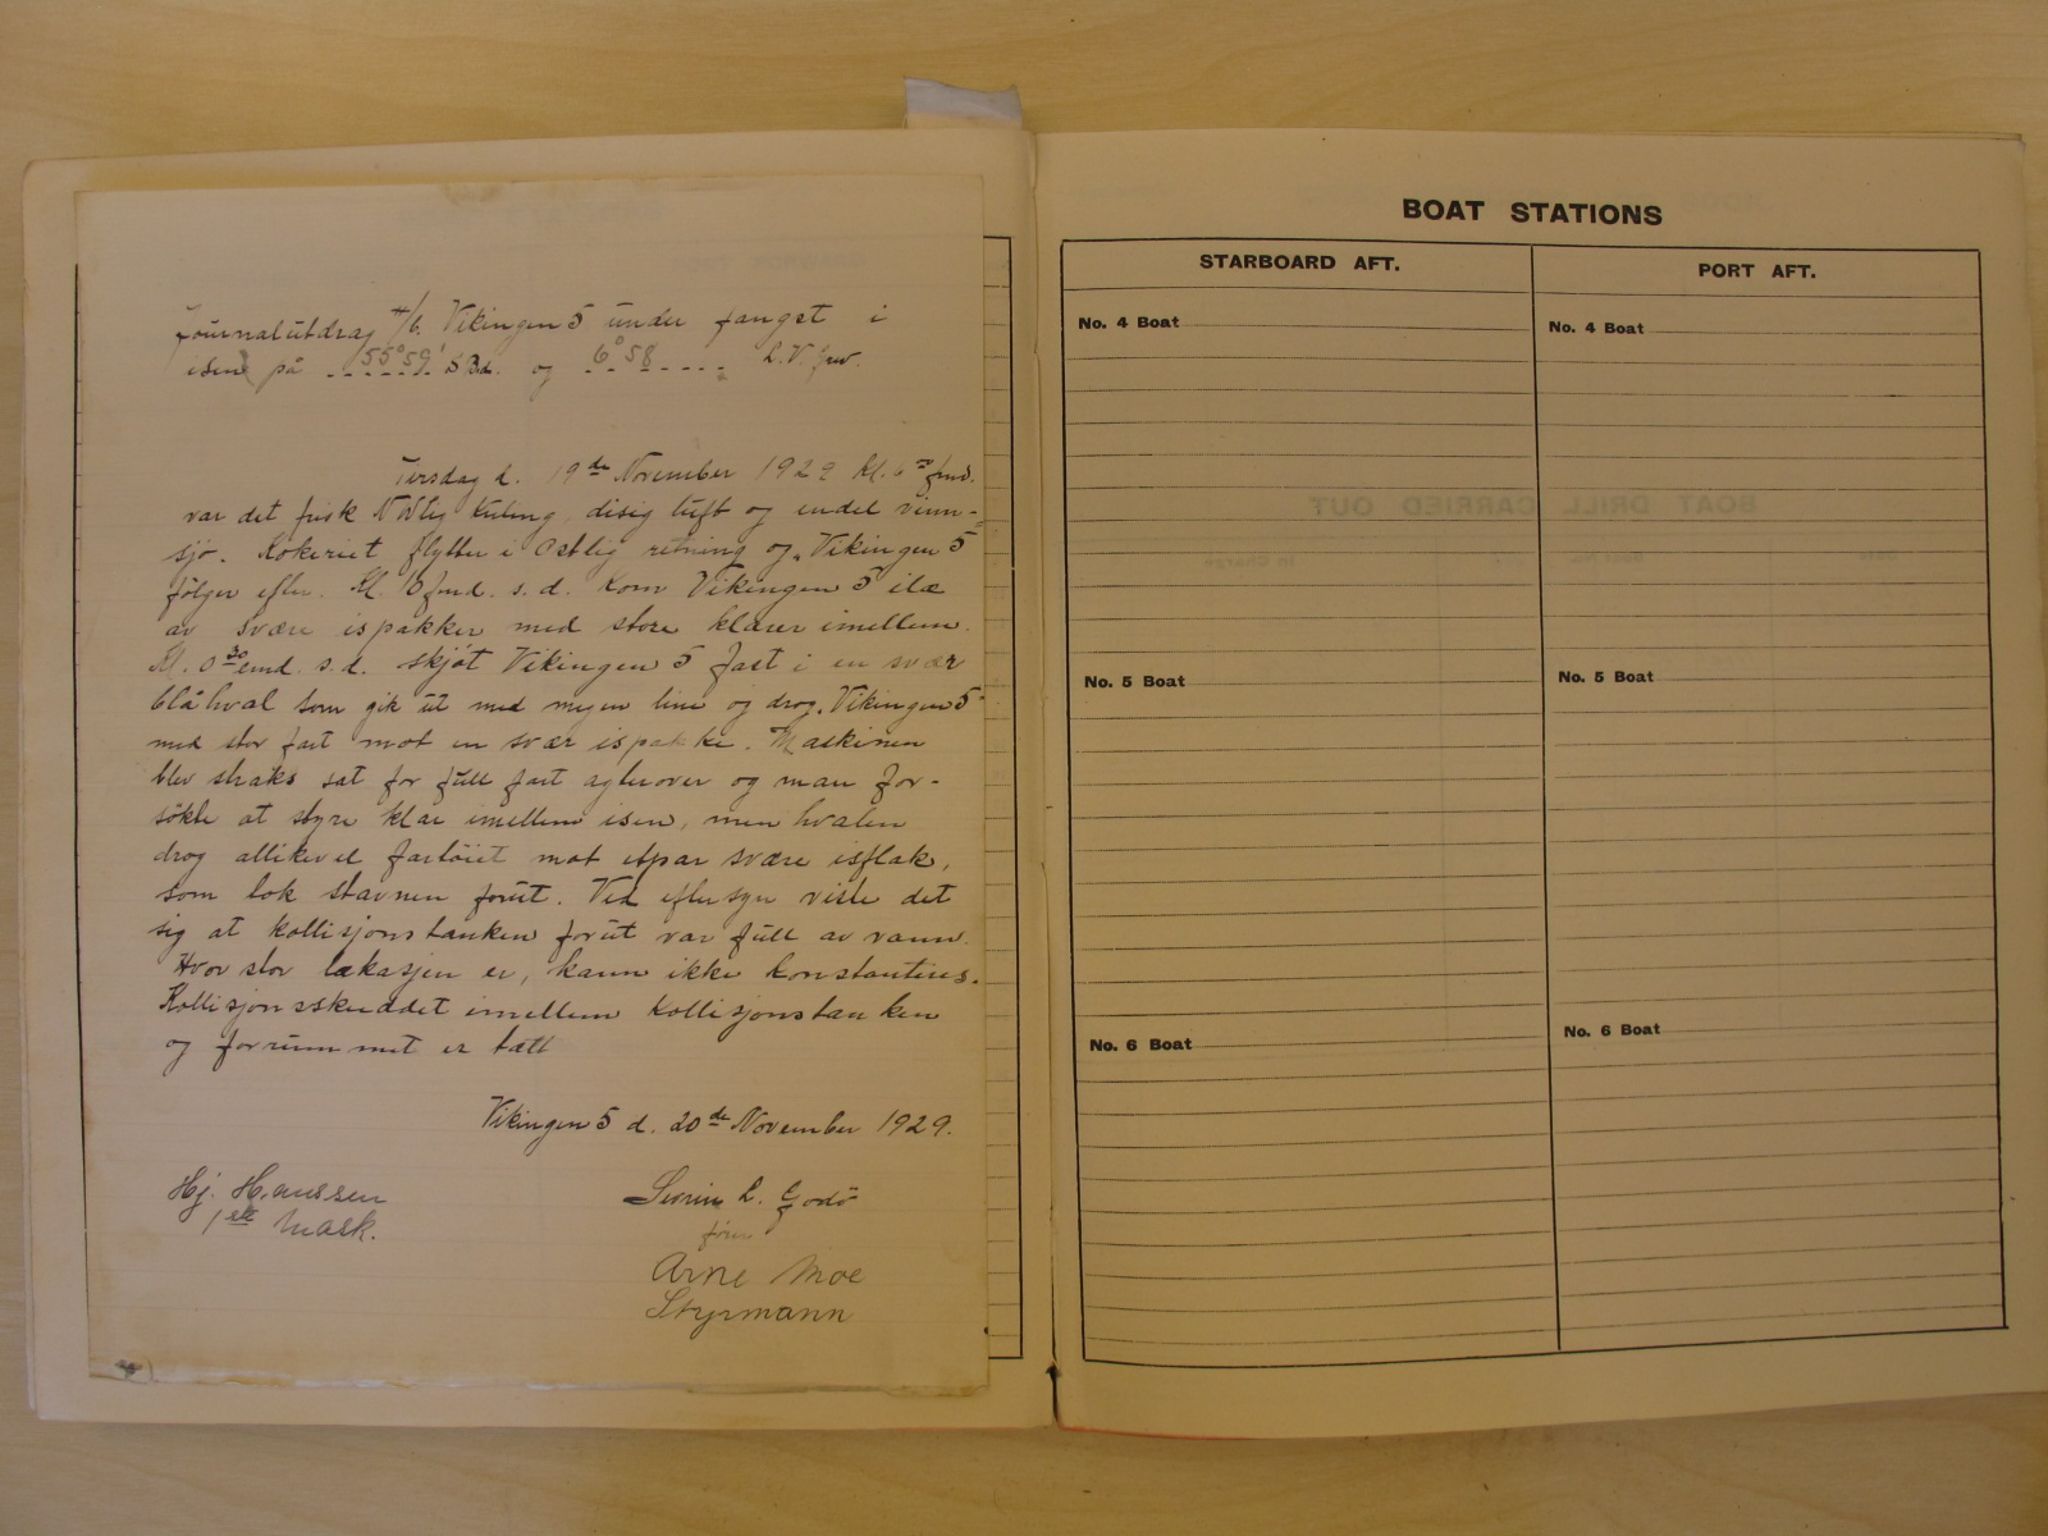 Journalutdrag H/b. Vikingen 5 under fangst i
isen på 55° 59' S Bd. og 6° 58 L. V. Grw.
Tirsdag d. 19de November 1929 Kl. 6 00 fmd.
var det frisk Nordlig kuling, disig luft og endel vinn-
sjø. Kokeriet flytter i Ostlig retning og „Vikingen 5
følger efter. Kl. 10 fmd. s. d. kom Vikingen 5 i læ
av svære ispakker med store klarer imellem.
Kl. 0 30 emd. s. d. skjøt Vikingen 5 fast i en svær
blåhval som gik ut med megen line og drog „Vikingen 5"
med stor fart mot en svær ispakke. Maskinen
blev straks sat for full fart agterover og man for-
søkte at styre klar imellem isen, men hvalen
drog allikevel fartöiet mot etpar svære isflak,
som tok stavnen forut. Ved eftersyn viste det
sig at kollisjonstanken forut var full av vann.
Hvor stor lækasjen er, kann ikke konstanteres.
Kollisjonsskuddet imellem kollisjonstanken
og forrummet er tætt
Vikingen 5 d. 20de November 1929.
Hj. Hanssen
1ste Mask.
L. Godö
fører
Arne Moe
Styrmann
BOAT STATIONS
STARBOARD AFT.
PORT AFT.
No. 4 Boat
No. 4 Boat
No. 5 Boat
No. 5 Boat
No. 6 Boat
No. 6 Boat